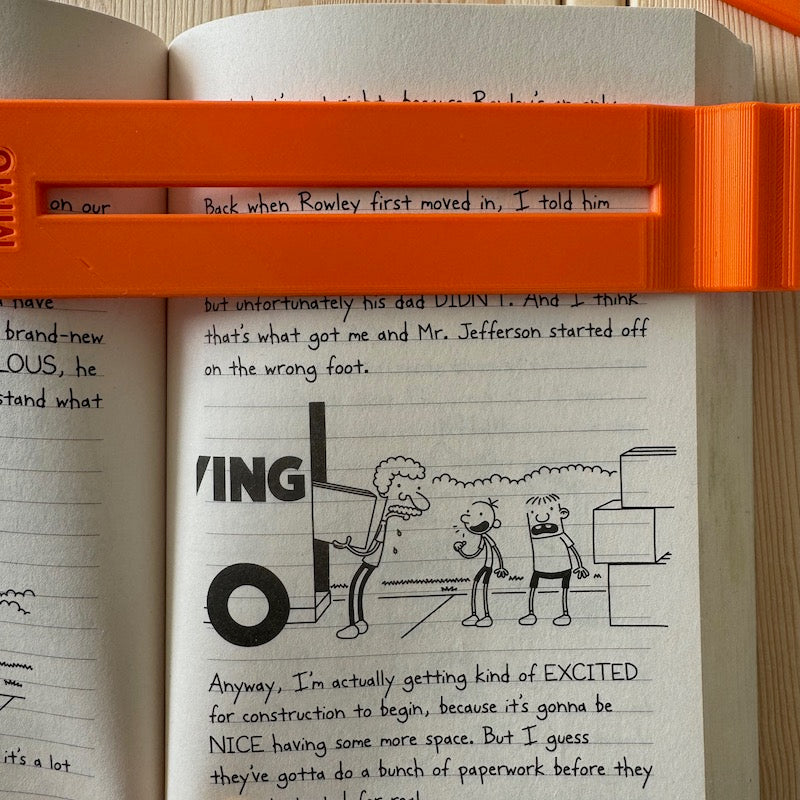 on our
have
brand-new
LOUS, he
stand what
it's a lot
Back when Rowley first moved in, I told him
but unfortunately his dad DIDN'T. And I think
that's what got me and Mr. Jefferson started off
on the wrong foot.
VING
Anyway, I'm actually getting kind of EXCITED
for construction to begin, because it's gonna be
NICE having some more space. But I guess
they've gotta do a bunch of paperwork before they